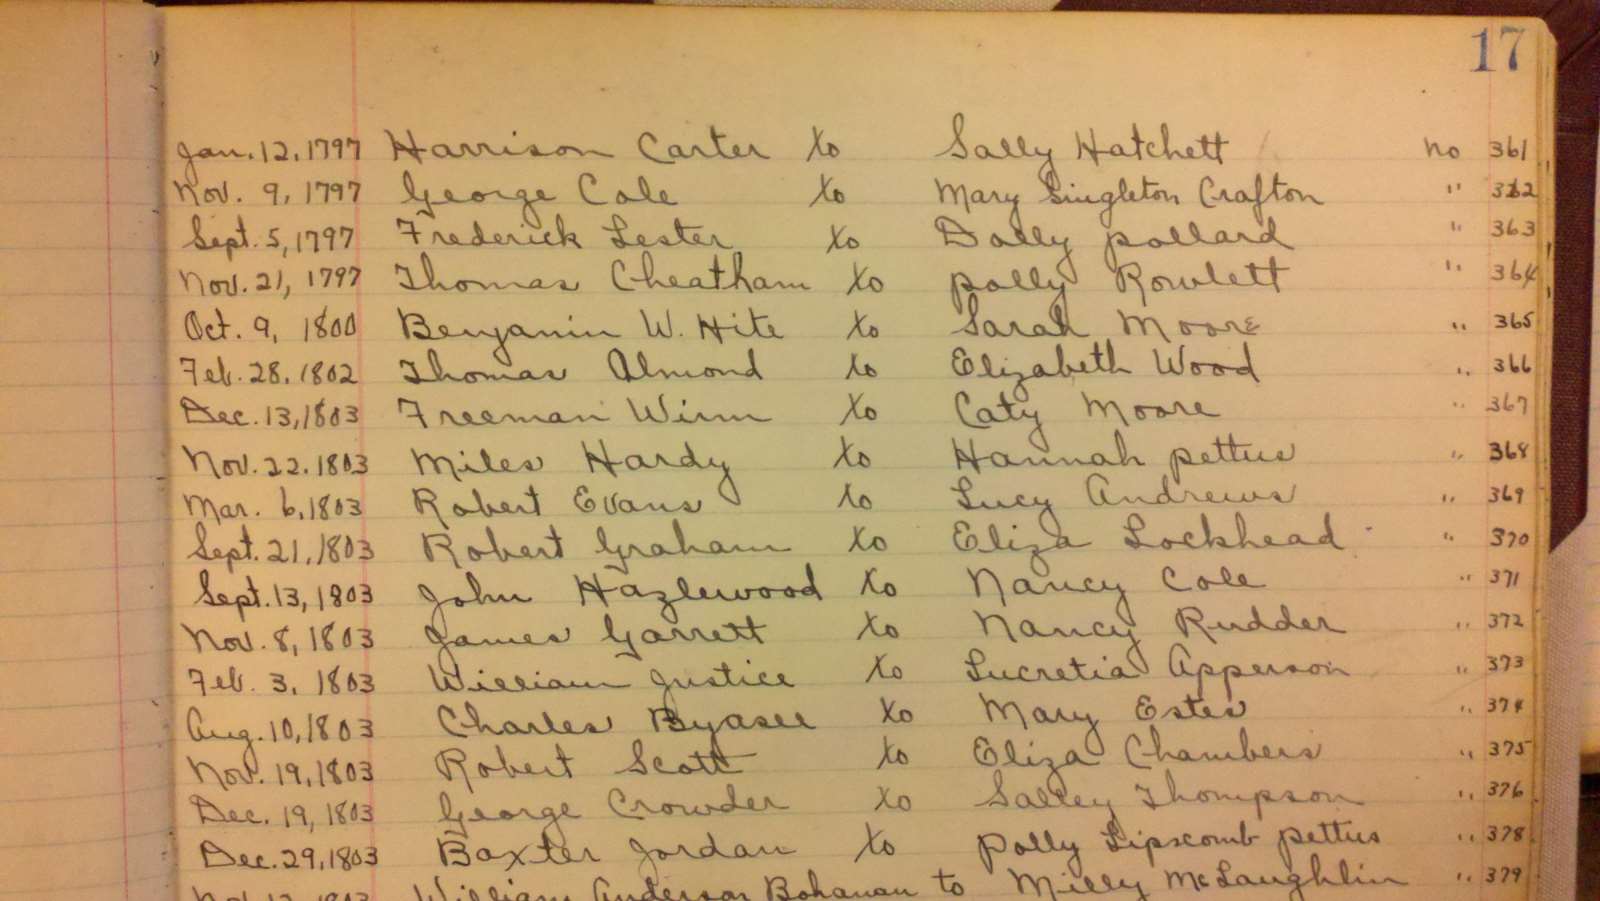 17
Jan. 12, 1797 Harrison Carter to Sally Hatchett no 361
Nov. 9, 1797 George Cole to Mary Singleton Crafton " 362
Sept. 5, 1797 Frederick Lester to Dolly pollard " 363
Nov. 21, 1797 Thomas Cheatham to polly Rowlett " 364
Oct. 9, 1800 Benjamin W. Hite to Sarah Moore " 365
Feb. 28, 1802 Thomas Almond to Elizabeth Wood " 366
Dec. 13, 1803 Freeman Winn to Caty Moore " 367
Nov. 22. 1803 Miles Hardy to Hannah pettus " 368
Mar. 6, 1803 Robert Evans to Lucy Andrews " 369
Sept. 21, 1803 Robert Graham to Eliza Lockhead " 370
Sept. 13, 1803 John Hazlewood to Nancy Cole " 371
Nov. 8, 1803 James Garrett to Nancy Rudder " 372
Feb. 3, 1803 William Justice to Lucretia Apperson " 373
Aug. 10, 1803 Charles Byasee to Mary Estes " 374
Nov. 19, 1803 Robert Scott to Eliza Chambers " 375
Dec. 19, 1803 George Crowder to Salley Thompson " 376
Dec. 29, 1803 Baxter Jordan to polly Lipscomb pettus " 378
William Anderson Bohanan to Milly McLaughlin " 379